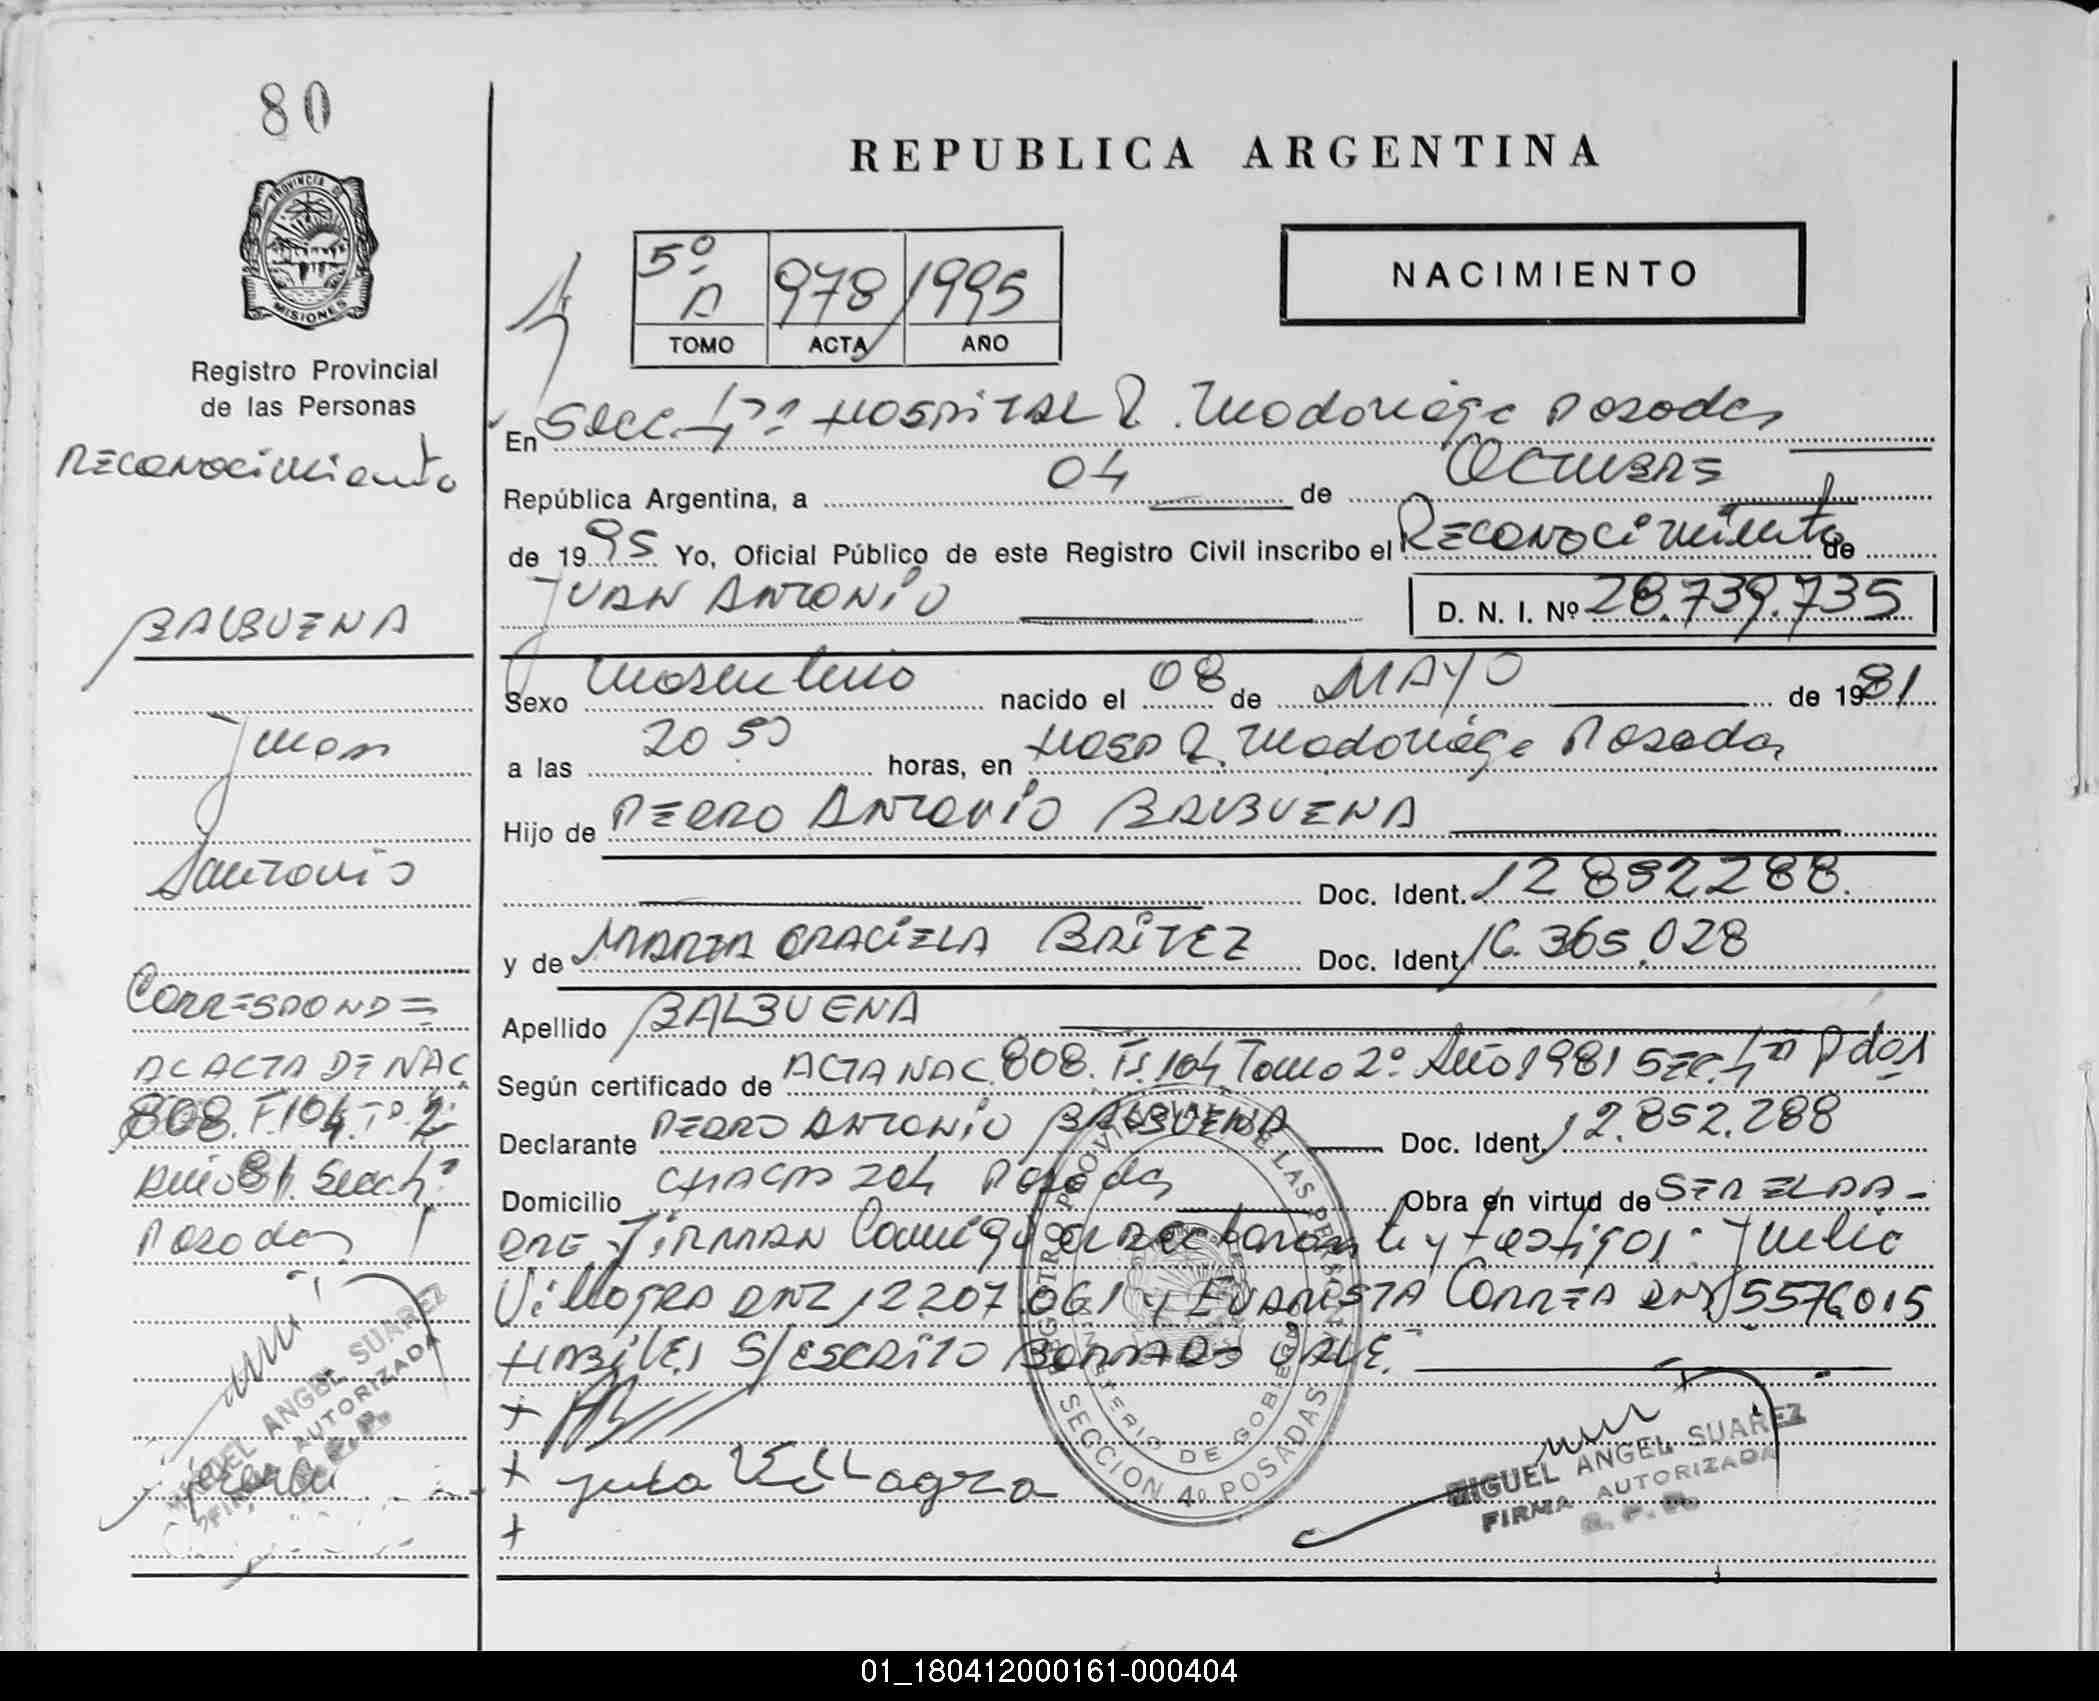 80
REPUBLICA ARGENTINA
PROVINCIA DE
MISIONES
5º
A
978
1995
TOMO
ACTA
AÑO
NACIMIENTO
Registro Provincial
de las Personas
Reconocimiento
En Secc. 4ta Hospital R. Madariaga Posadas
República Argentina, a 04 de Octubre
de 1995 Yo, Oficial Público de este Registro Civil inscribo el Reconocimiento de
JUAN ANTONIO D. N. I. Nº 28.739.735
BALBUENA
Juan
Antonio
Sexo Masculino nacido el 08 de MAYO de 1981
a las 20 50 horas, en Hosp R. Madariaga Posadas
Hijo de PEDRO ANTONIO BALBUENA
Doc. Ident. 12 852288
y de MARIA GRACIELA BRITEZ Doc. Ident. 16.365.028
Apellido BALBUENA
Según certificado de ACTA NAC. 808. Fs. 104, Tomo 2º Año 1981 Sec. 4ta Pdas
Declarante PEDRO ANTONIO BALBUENA Doc. Ident. 12.852.288
Domicilio CHACRA 204 Posadas Obra en virtud de SER EL PA-
DRE FIRMAN Conmigo el declarante y testigos: Julio
Villagra DNI 12207.061 y EVARISTA CORREA DNI 5576015
HABILES S/ESCRITO BORRADO VALE.-
CORRESPONDE
AL ACTA DE NAC
808. F 104. Tº 2º
Año 81. Secc 4ta
Posadas
+
+ Julio Villagra
+
REGISTRO PROVINCIAL DE LAS PERSONAS
MINISTERIO DE GOBIERNO
SECCION 4º POSADAS
MIGUEL ANGEL SUAREZ
FIRMA AUTORIZADA
R. P. P.
MIGUEL ANGEL SUAREZ
FIRMA AUTORIZADA
R. P. P.
01_180412000161-000404